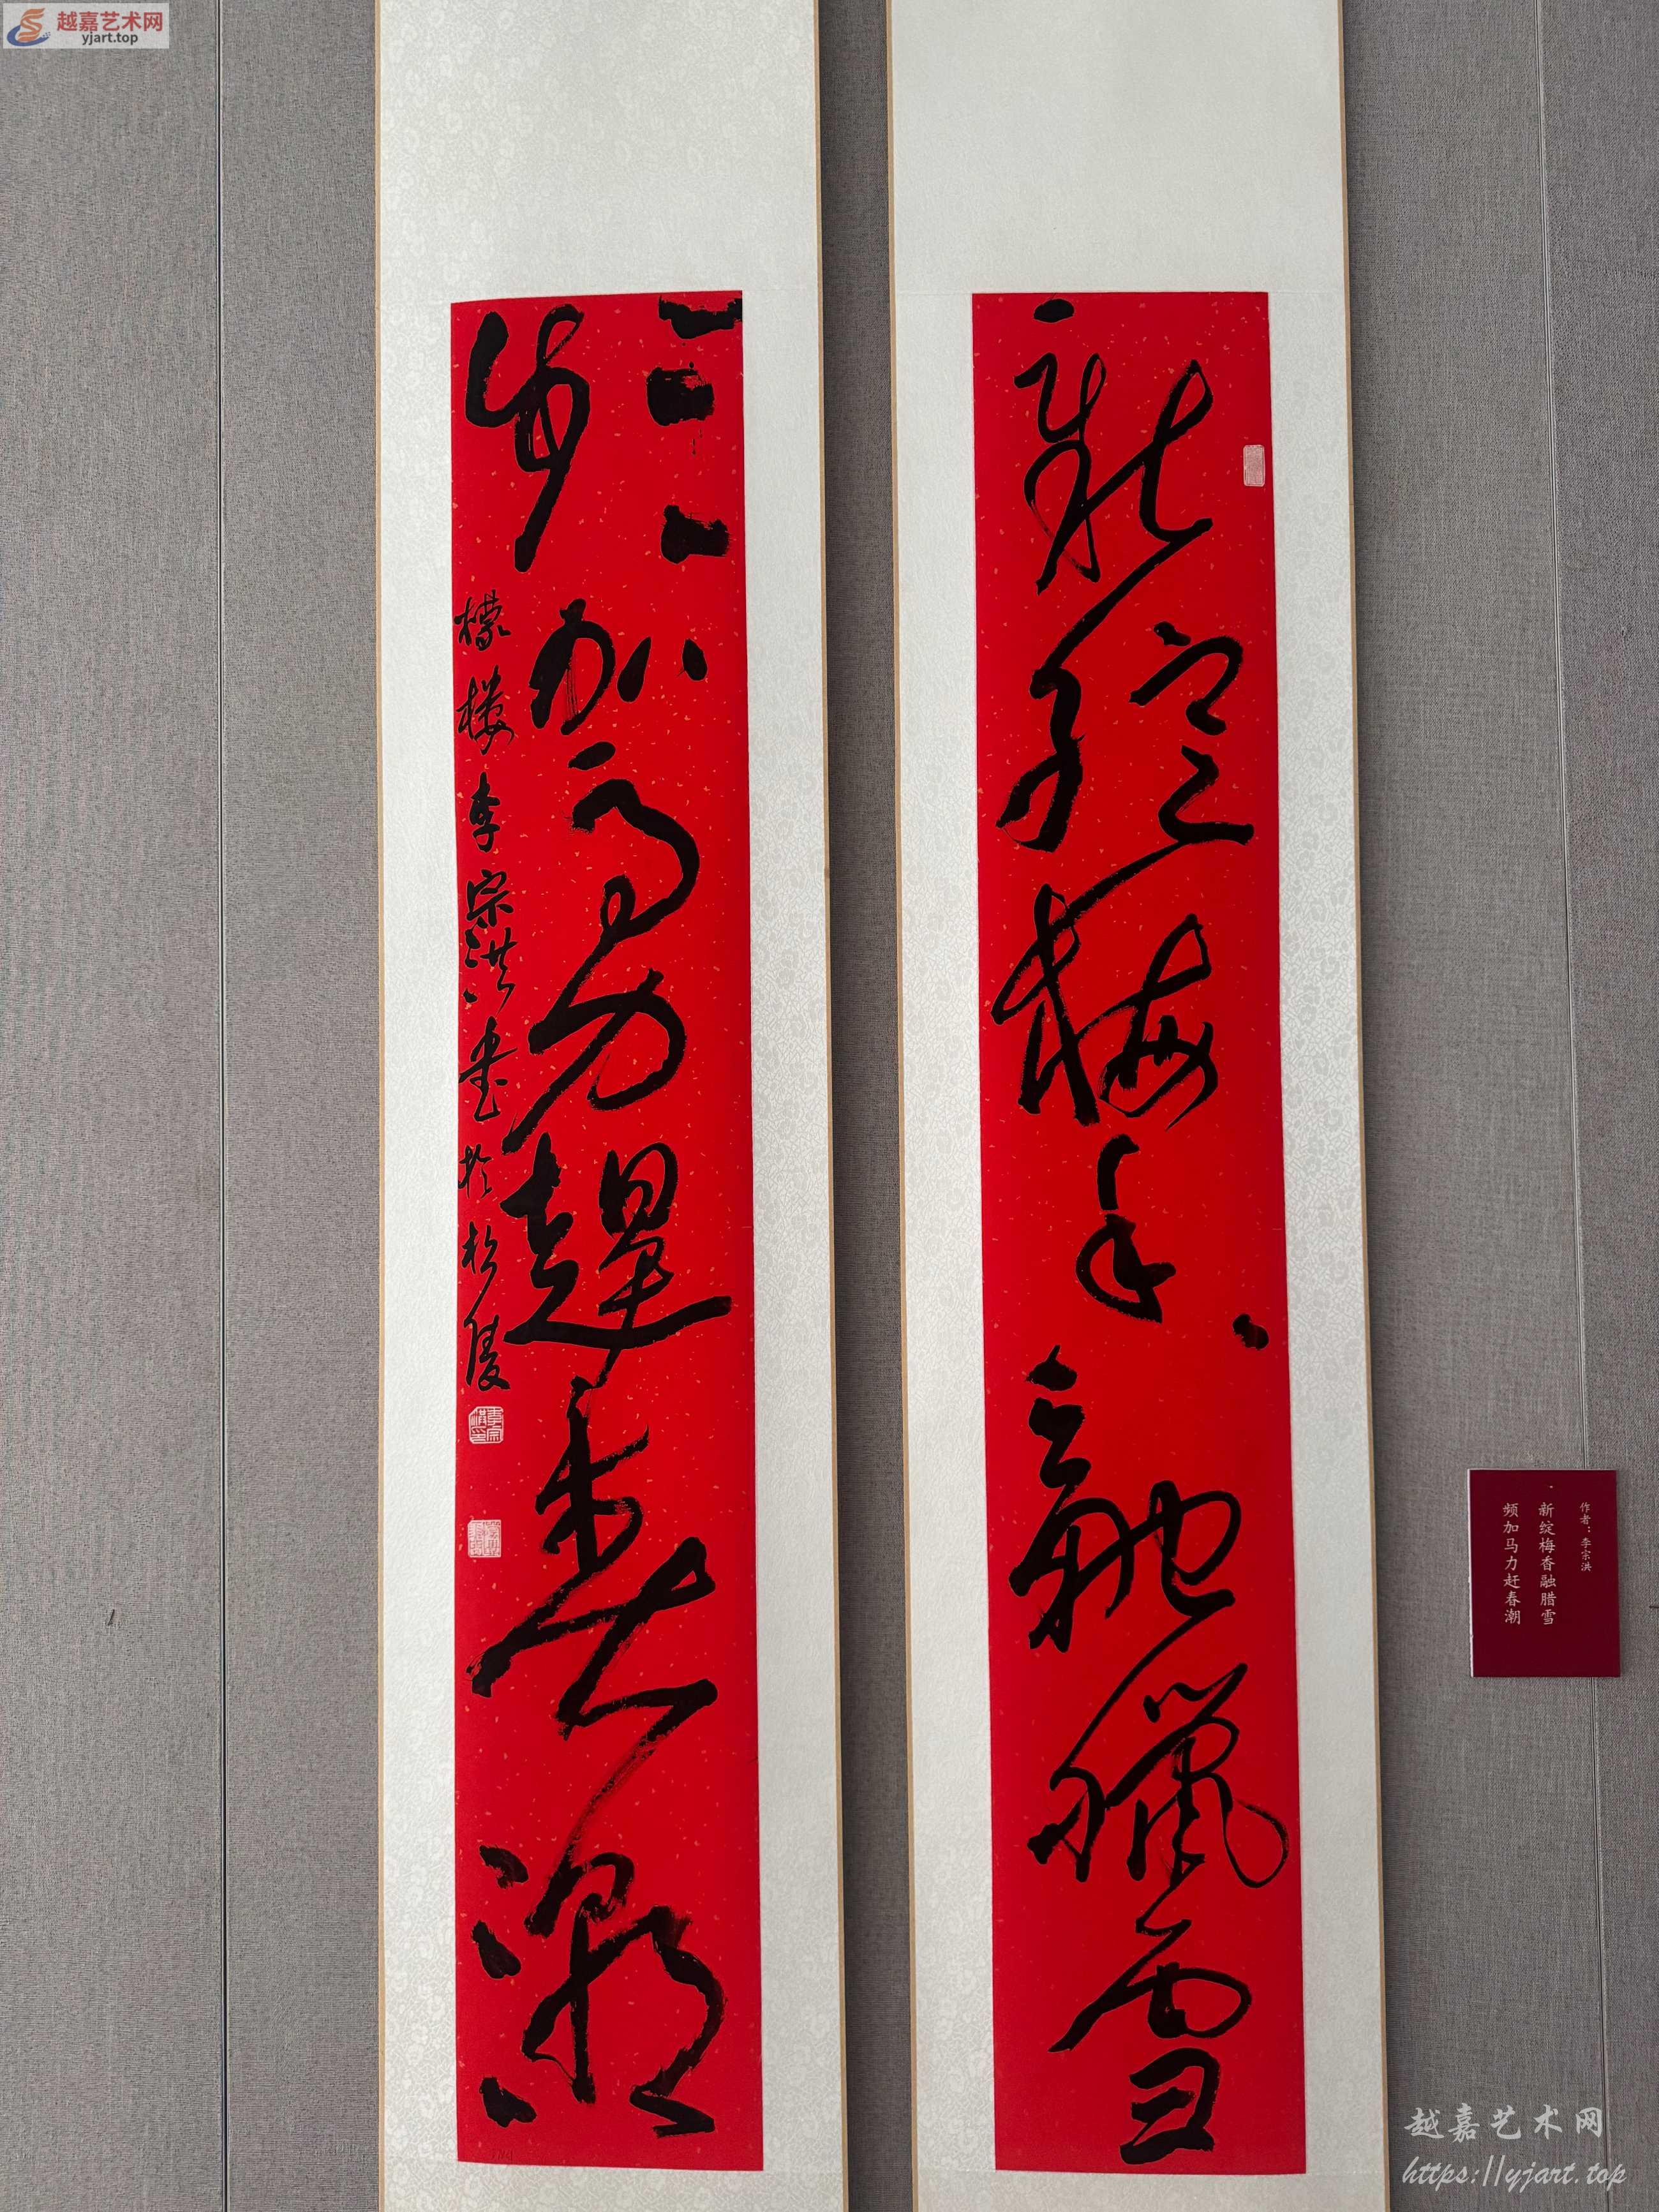 越嘉艺术网
yjart.top
新綻梅香融臘雪
頻加馬力趕春潮
檬楼李宗洪書於松陵
作者：李宗洪
新绽梅香融腊雪
频加马力赶春潮
越嘉艺术网
https://yjart.top